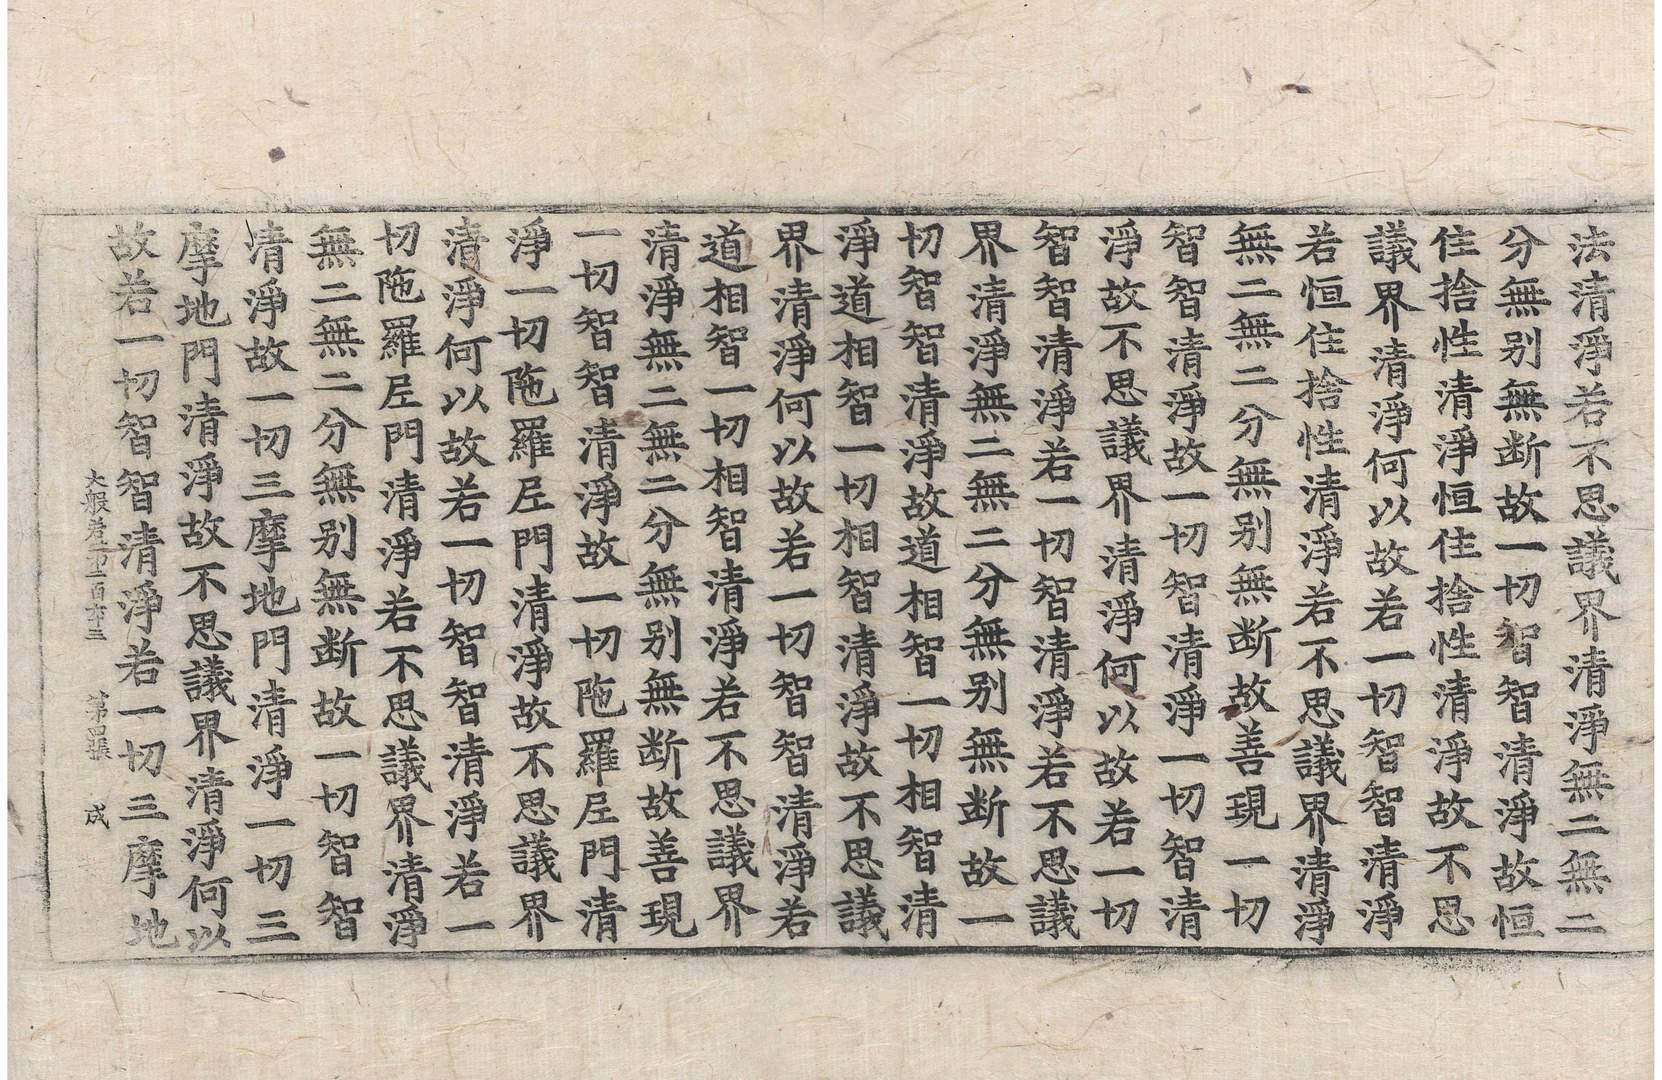 法清淨若不思議界清淨無二無二
分無别無断故一切智智清淨故恒
住捨性清淨恒住捨性清淨故不思
議界清淨何以故若一切智智清淨
若恒住捨性清淨若不思議界清淨
無二無二分無别無断故善現一切
智智清淨故一切智清淨一切智清
淨故不思議界清淨何以故若一切
智智清淨若一切智清淨若不思議
界清淨無二無二分無别無断故一
切智智清淨故道相智一切相智清
淨道相智一切相智清淨故不思議
界清淨何以故若一切智智清淨若
道相智一切相智清淨若不思議界
清淨無二無二分無别無断故善現
一切智智清淨故一切陁羅𡰱門清
淨一切陁羅𡰱門清淨故不思議界
清淨何以故若一切智智清淨若一
切陁羅𡰱門清淨若不思議界清淨
無二無二分無别無断故一切智智
清淨故一切三摩地門清淨一切三
摩地門清淨故不思議界清淨何以
故若一切智智清淨若一切三摩地
大般若 百六十三 第四張